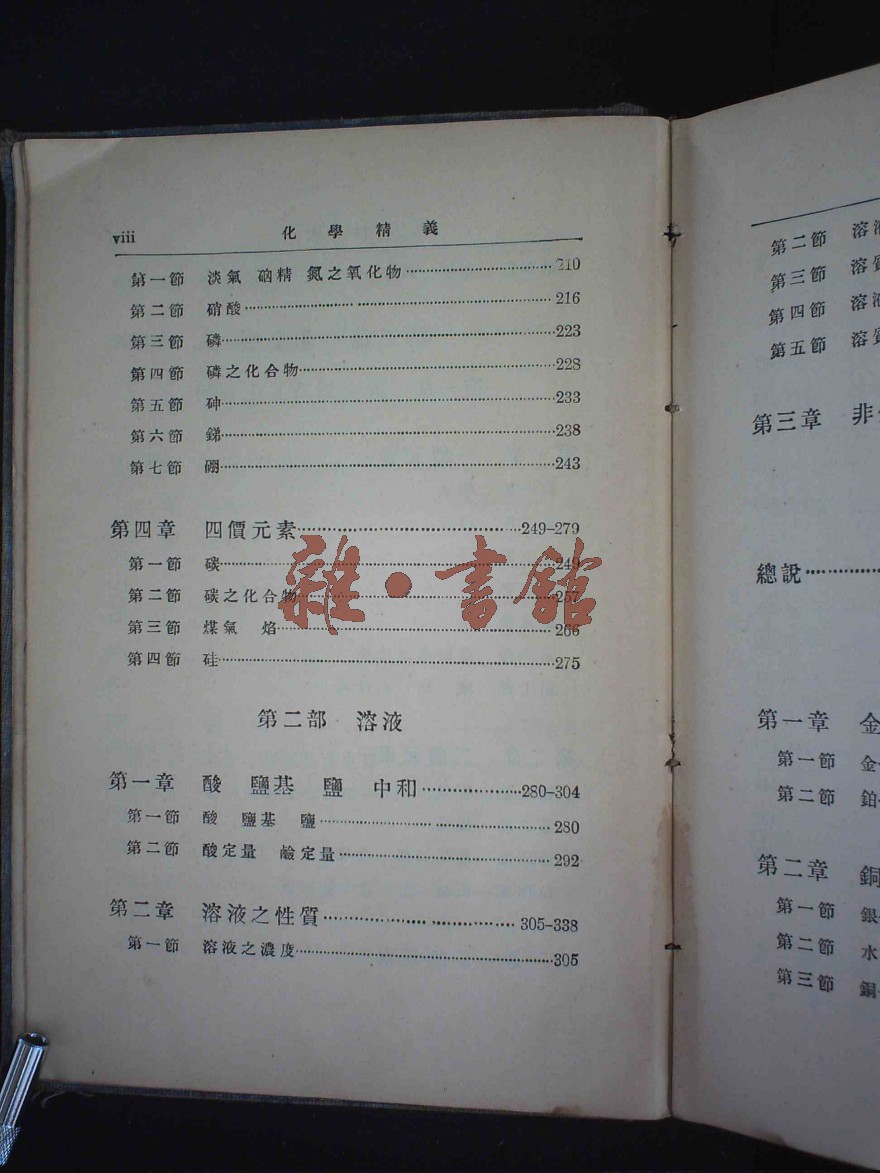 viii 化學精義
第一節 淡氣 硇精 氮之氧化物……210
第二節 硝酸……216
第三節 磷……223
第四節 磷之化合物……228
第五節 砷……233
第六節 銻……238
第七節 硼……243
第四章 四價元素……249–279
第一節 碳……249
第二節 碳之化合物……257
第三節 煤氣 焰……266
第四節 硅……275
第二部 溶液
第一章 酸 鹽基 鹽 中和……280–304
第一節 酸 鹽基 鹽……280
第二節 酸定量 鹼定量……292
第二章 溶液之性質……305–338
第一節 溶液之濃度……305
雜·書館
第二節 溶
第三節 溶質
第四節 溶液
第五節 溶質
第三章 非
總說……
第一章 金
第一節 金
第二節 鉑
第二章 銅
第一節 銀
第二節 水
第三節 銅